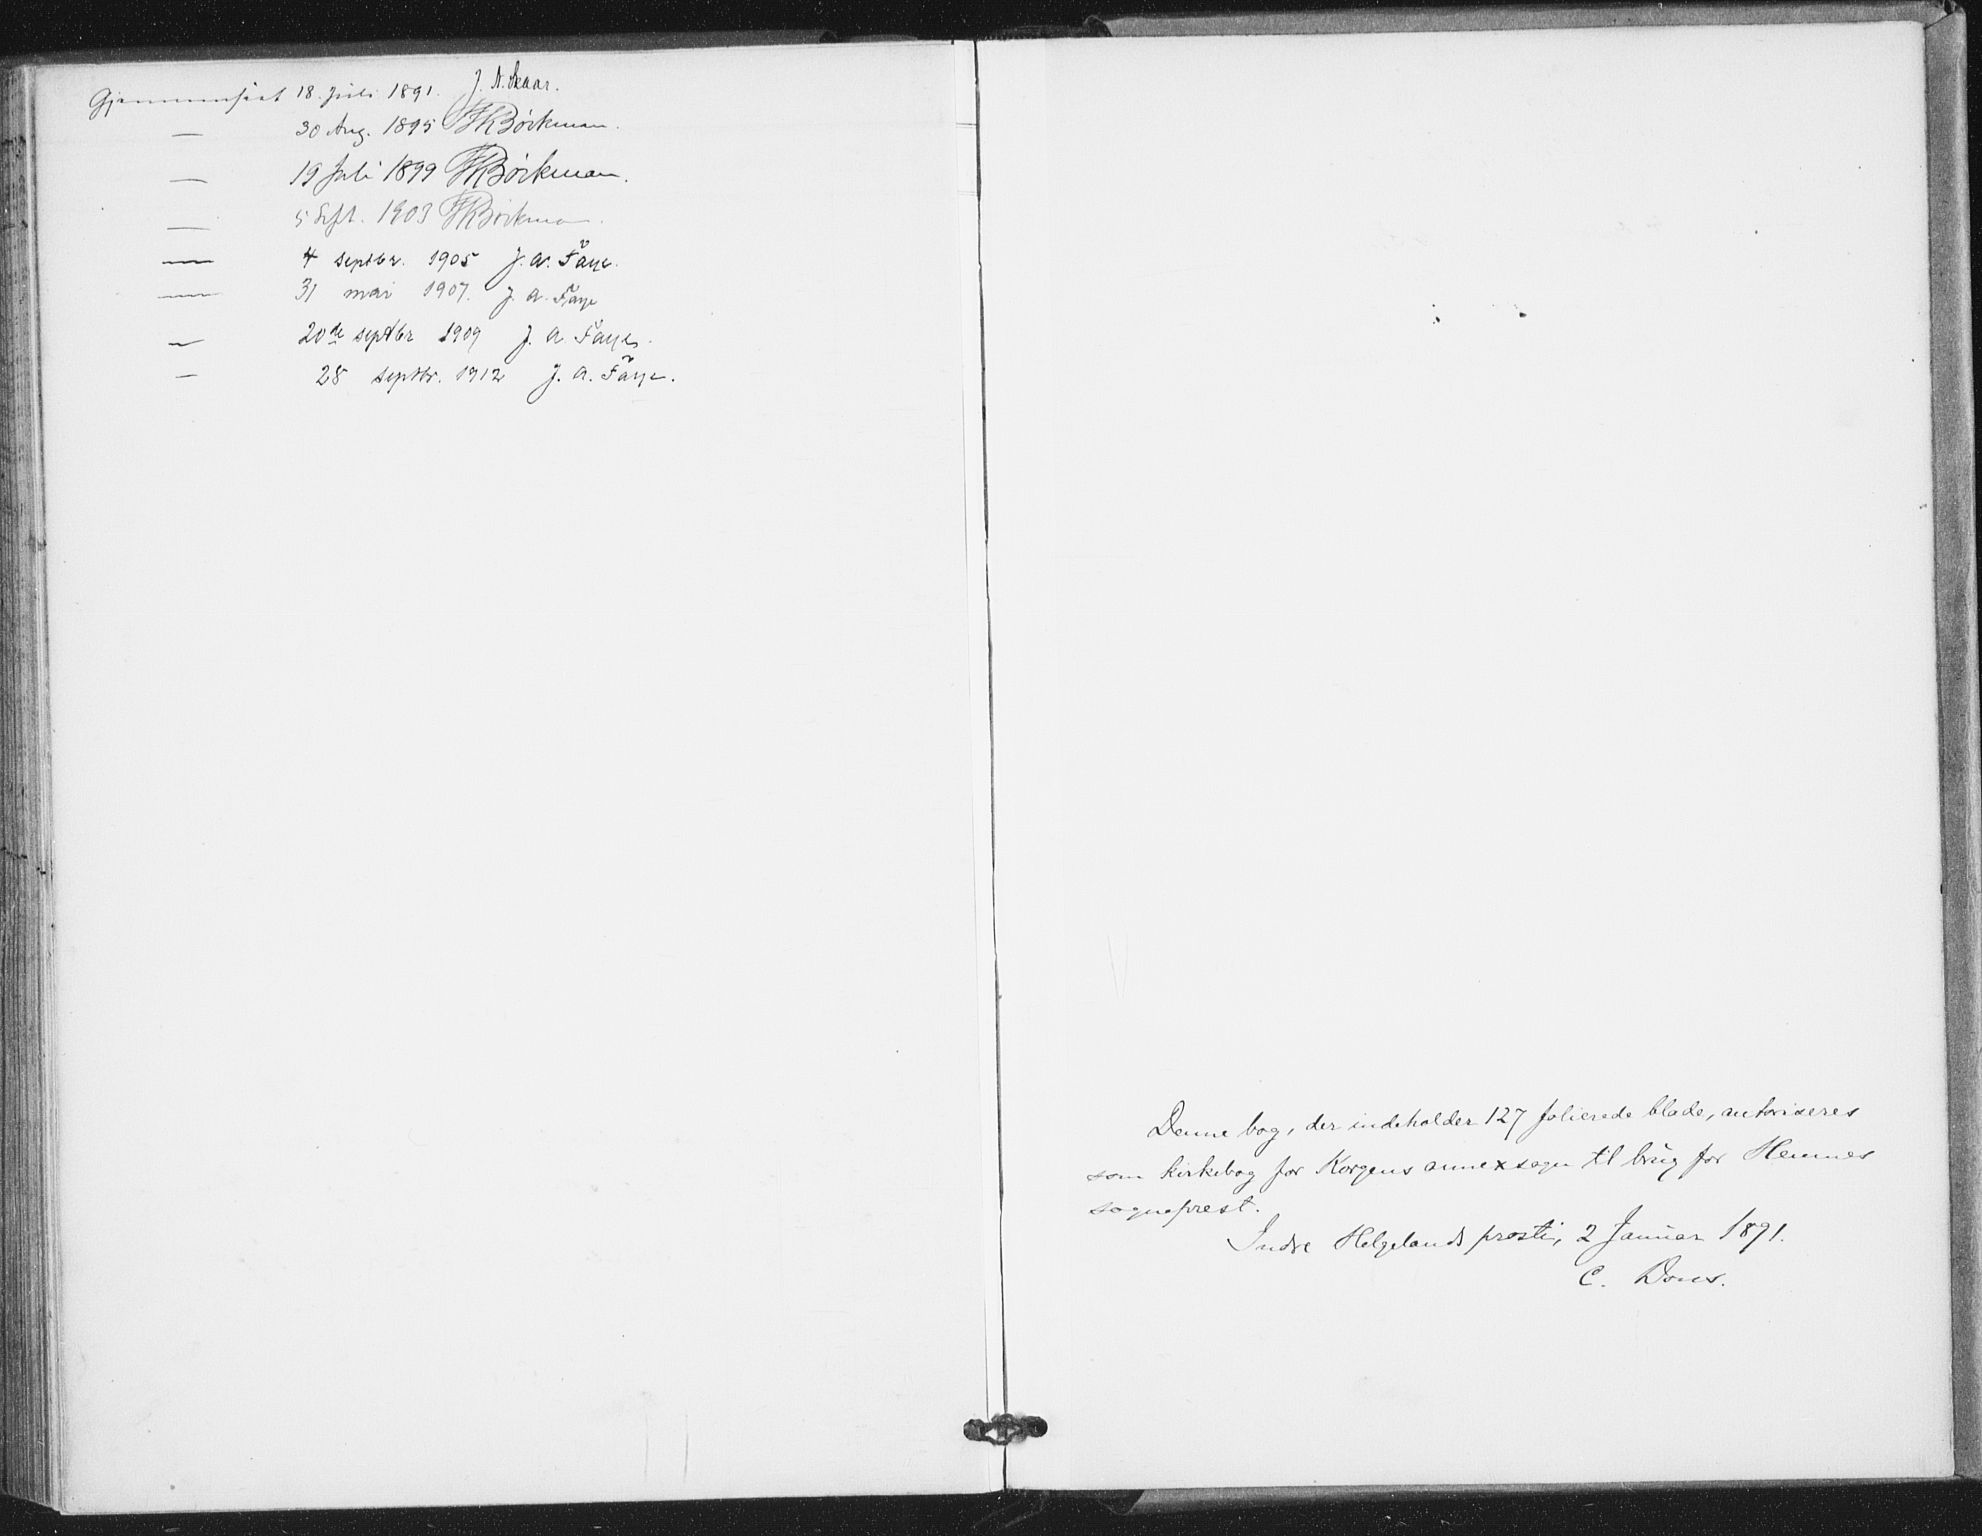 Gjennemseet 18. Juli 1891. J. N. Skaar.
— 30 Aug. 1895 Bøckman.
— 19 Juli 1899 Bøckman.
— 5 Sept. 1903 Bøckman.
— 4 septbr. 1905 J. A. Faye.
— 31 mai 1907. J. A. Faye
— 20de septbr 1909 J. A Faye.
— 28 septbr. 1912 J. A. Faye.
Denne bog, der indeholder 127 folierede blade, autoriseres
som kirkebog for Korgens annexsogn til brug for Hemnes
sogneprest.
Indre Helgelands prosti, 2 Januar 1891.
C. Dons.